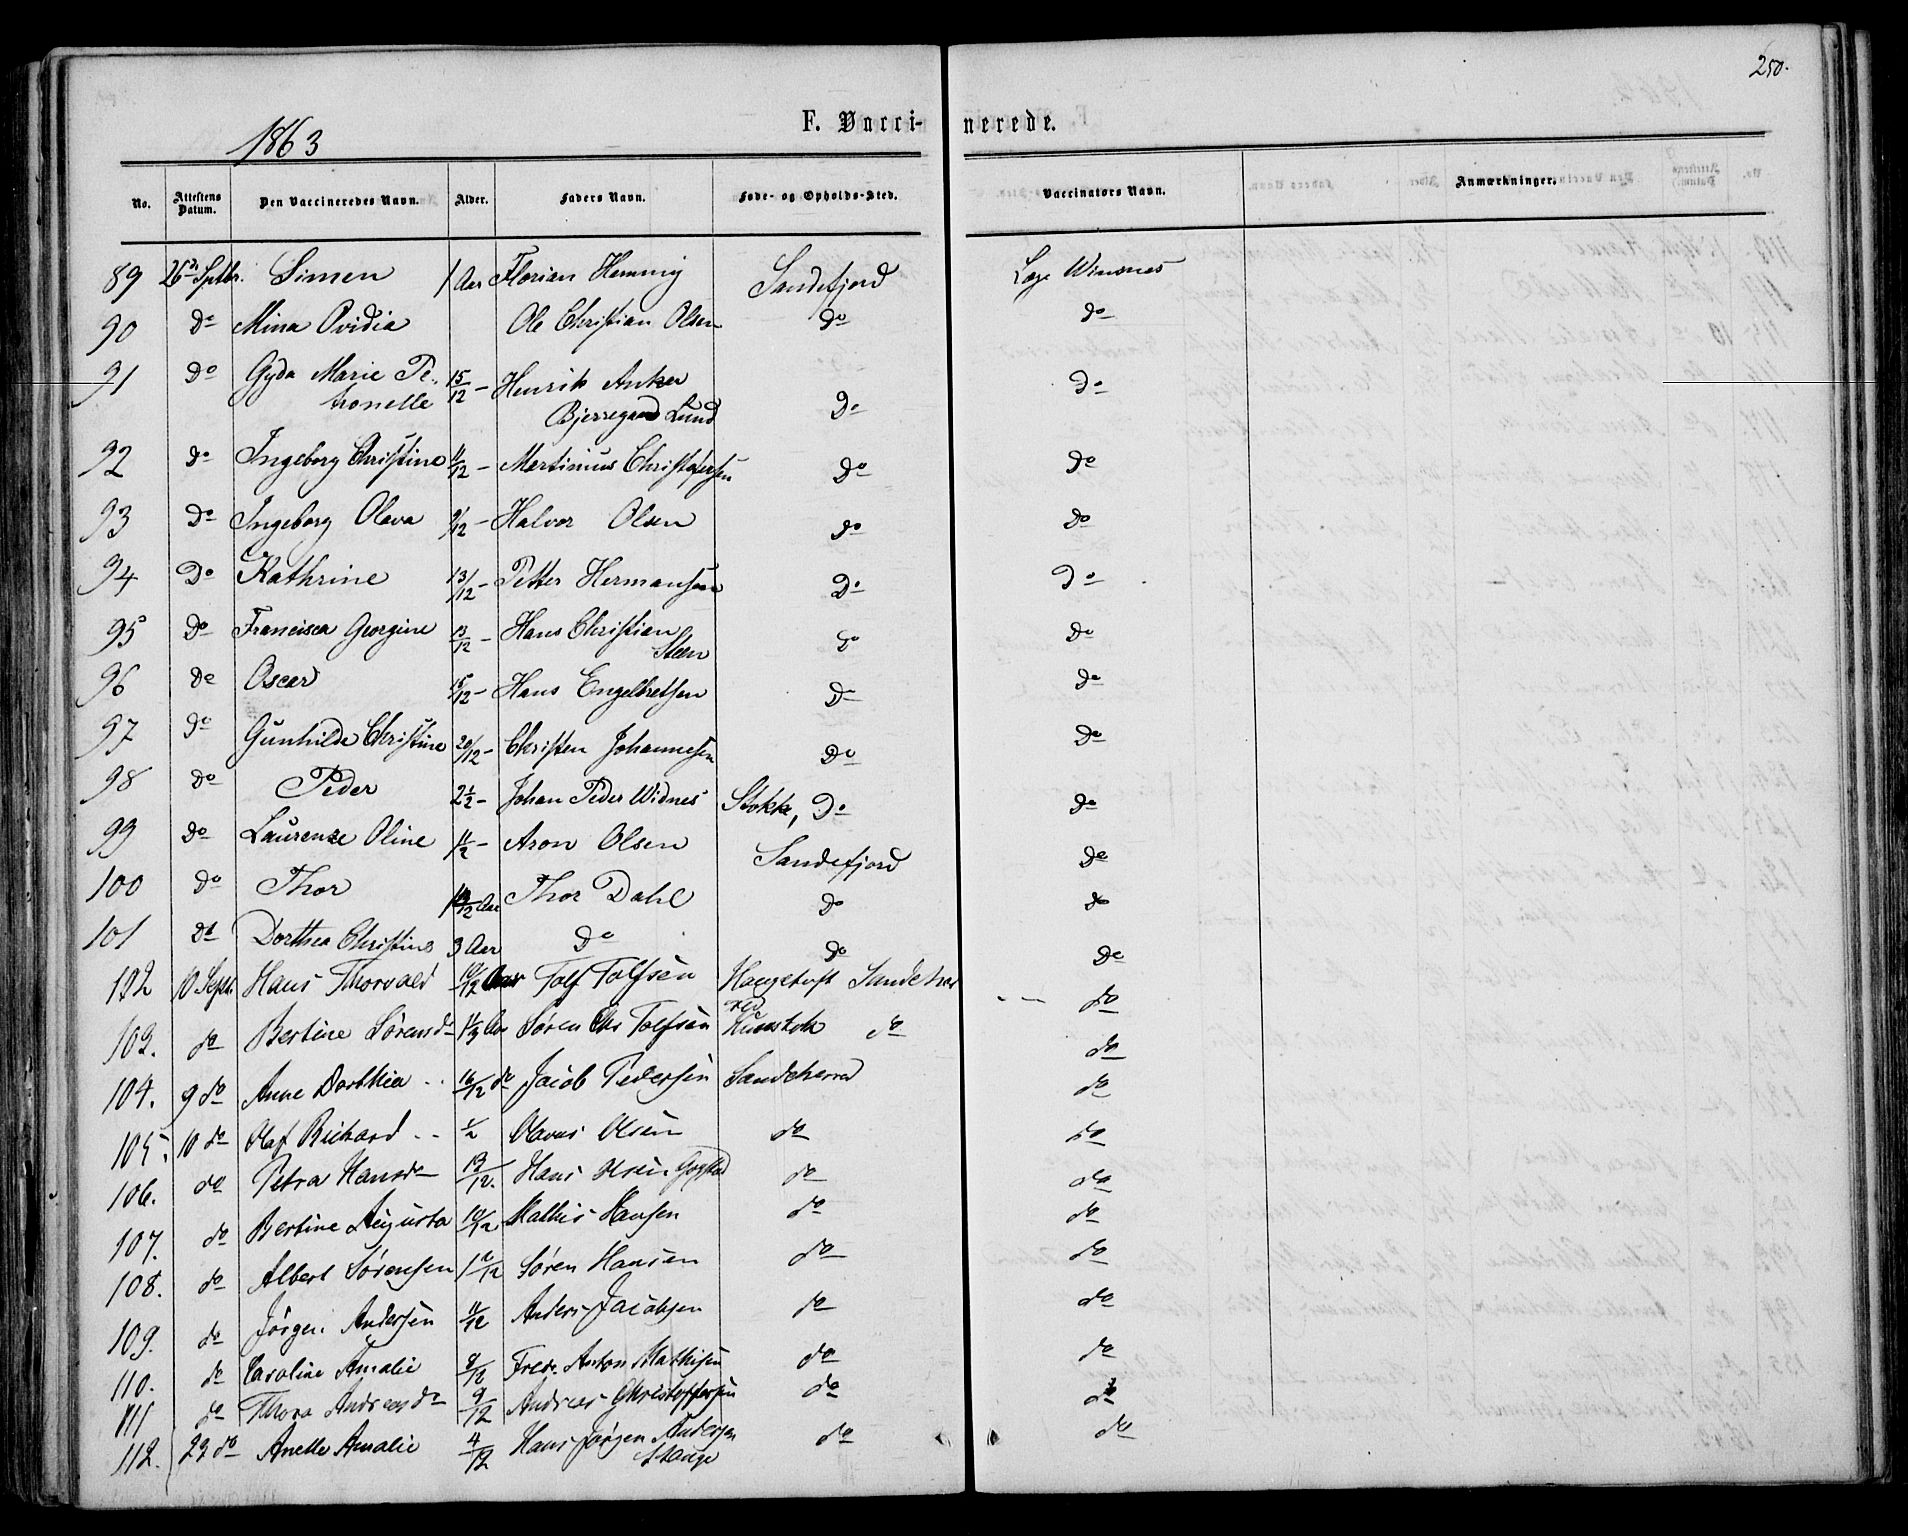 250.
1863
F. Vacci- nerede.
No. Attestens Datum. Den Vaccineredes Navn. Alder. Faders Navn. Føde- og Opholds-Sted. Vaccinators Navn. Anmærkninger.
89 26de Septbr. Simen 1 Aar Florian Hemmig Sandefjord Læge Winsnes
90 Do Mina Ovidia Ole Christian Olsen Do Do
91 Do Gyda Marie Pe- 15/12 - Henrik Anker Do
tronelle Bjerregaard Lund Do
92 Do Ingeborg Christine 11/12 - Martinius Christofersen Do Do
93 Do Ingeborg Olava 9/12 - Halvor Olsen Do Do
94 Do Kathrine 13/12 - Petter Hermansen Do Do
95 Do Francisca Georgine 13/12 - Hans Christian Do Do
Steen
96 Do Oscar 15/12 - Hans Engelbretsen Do Do
97 Do Gunhilde Christine 20/12 - Christen Johannesen Do Do
98 Do Peder 2 1/2 - Johan Peder Widnes Stokke, Do Do
99 Do Laurenze Oline 1 1/2 - Aron Olsen Sandefjord Do
100 Do Thor Aar Thor Dahl Do Do
101 Do Dorthea Christine 3 Aar Do Do Do
102 10 Septr. Hans Thorvald 10/12 Aar Tolf Tolfsen Haugetuft Sandeher- do
red
103. do Bertine Sørensdr Aar Søren Chr Tolfsen do do
104. 9 do Anne Dorthea .. 16/12 do Jacob Pedersen Sandeherred do
105. 10 do Olaf Richard .. 1/2 Olavus Olsen do do
106. do Petra Hansdr 13/12. Hans Olsen Gogstad do do
107. do Bertine Augusta 10/12 Mathis Hansen do do
108. do Albert Sørensen Søren Hansen do do
109. do Jørgen Andersen 11/12 Anders Jacobsen do do
110. do Caroline Amalie 8/12 Fredr. Anton Mathisen do do
111 do Thora Andreasdr 9/12 Andreas Christoffersen do do
112. 23 do Anette Amalie 4/12 Hans Jørgen Andersen do do
Hauge